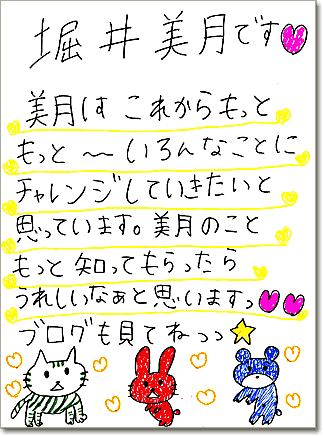 堀井美月です
美月は これからもっと
もっと〜いろんなことに
チャレンジしていきたいと
思っています。美月のこと
もっと知ってもらったら
うれしいなぁと思いますっ
ブログも見てねっっ